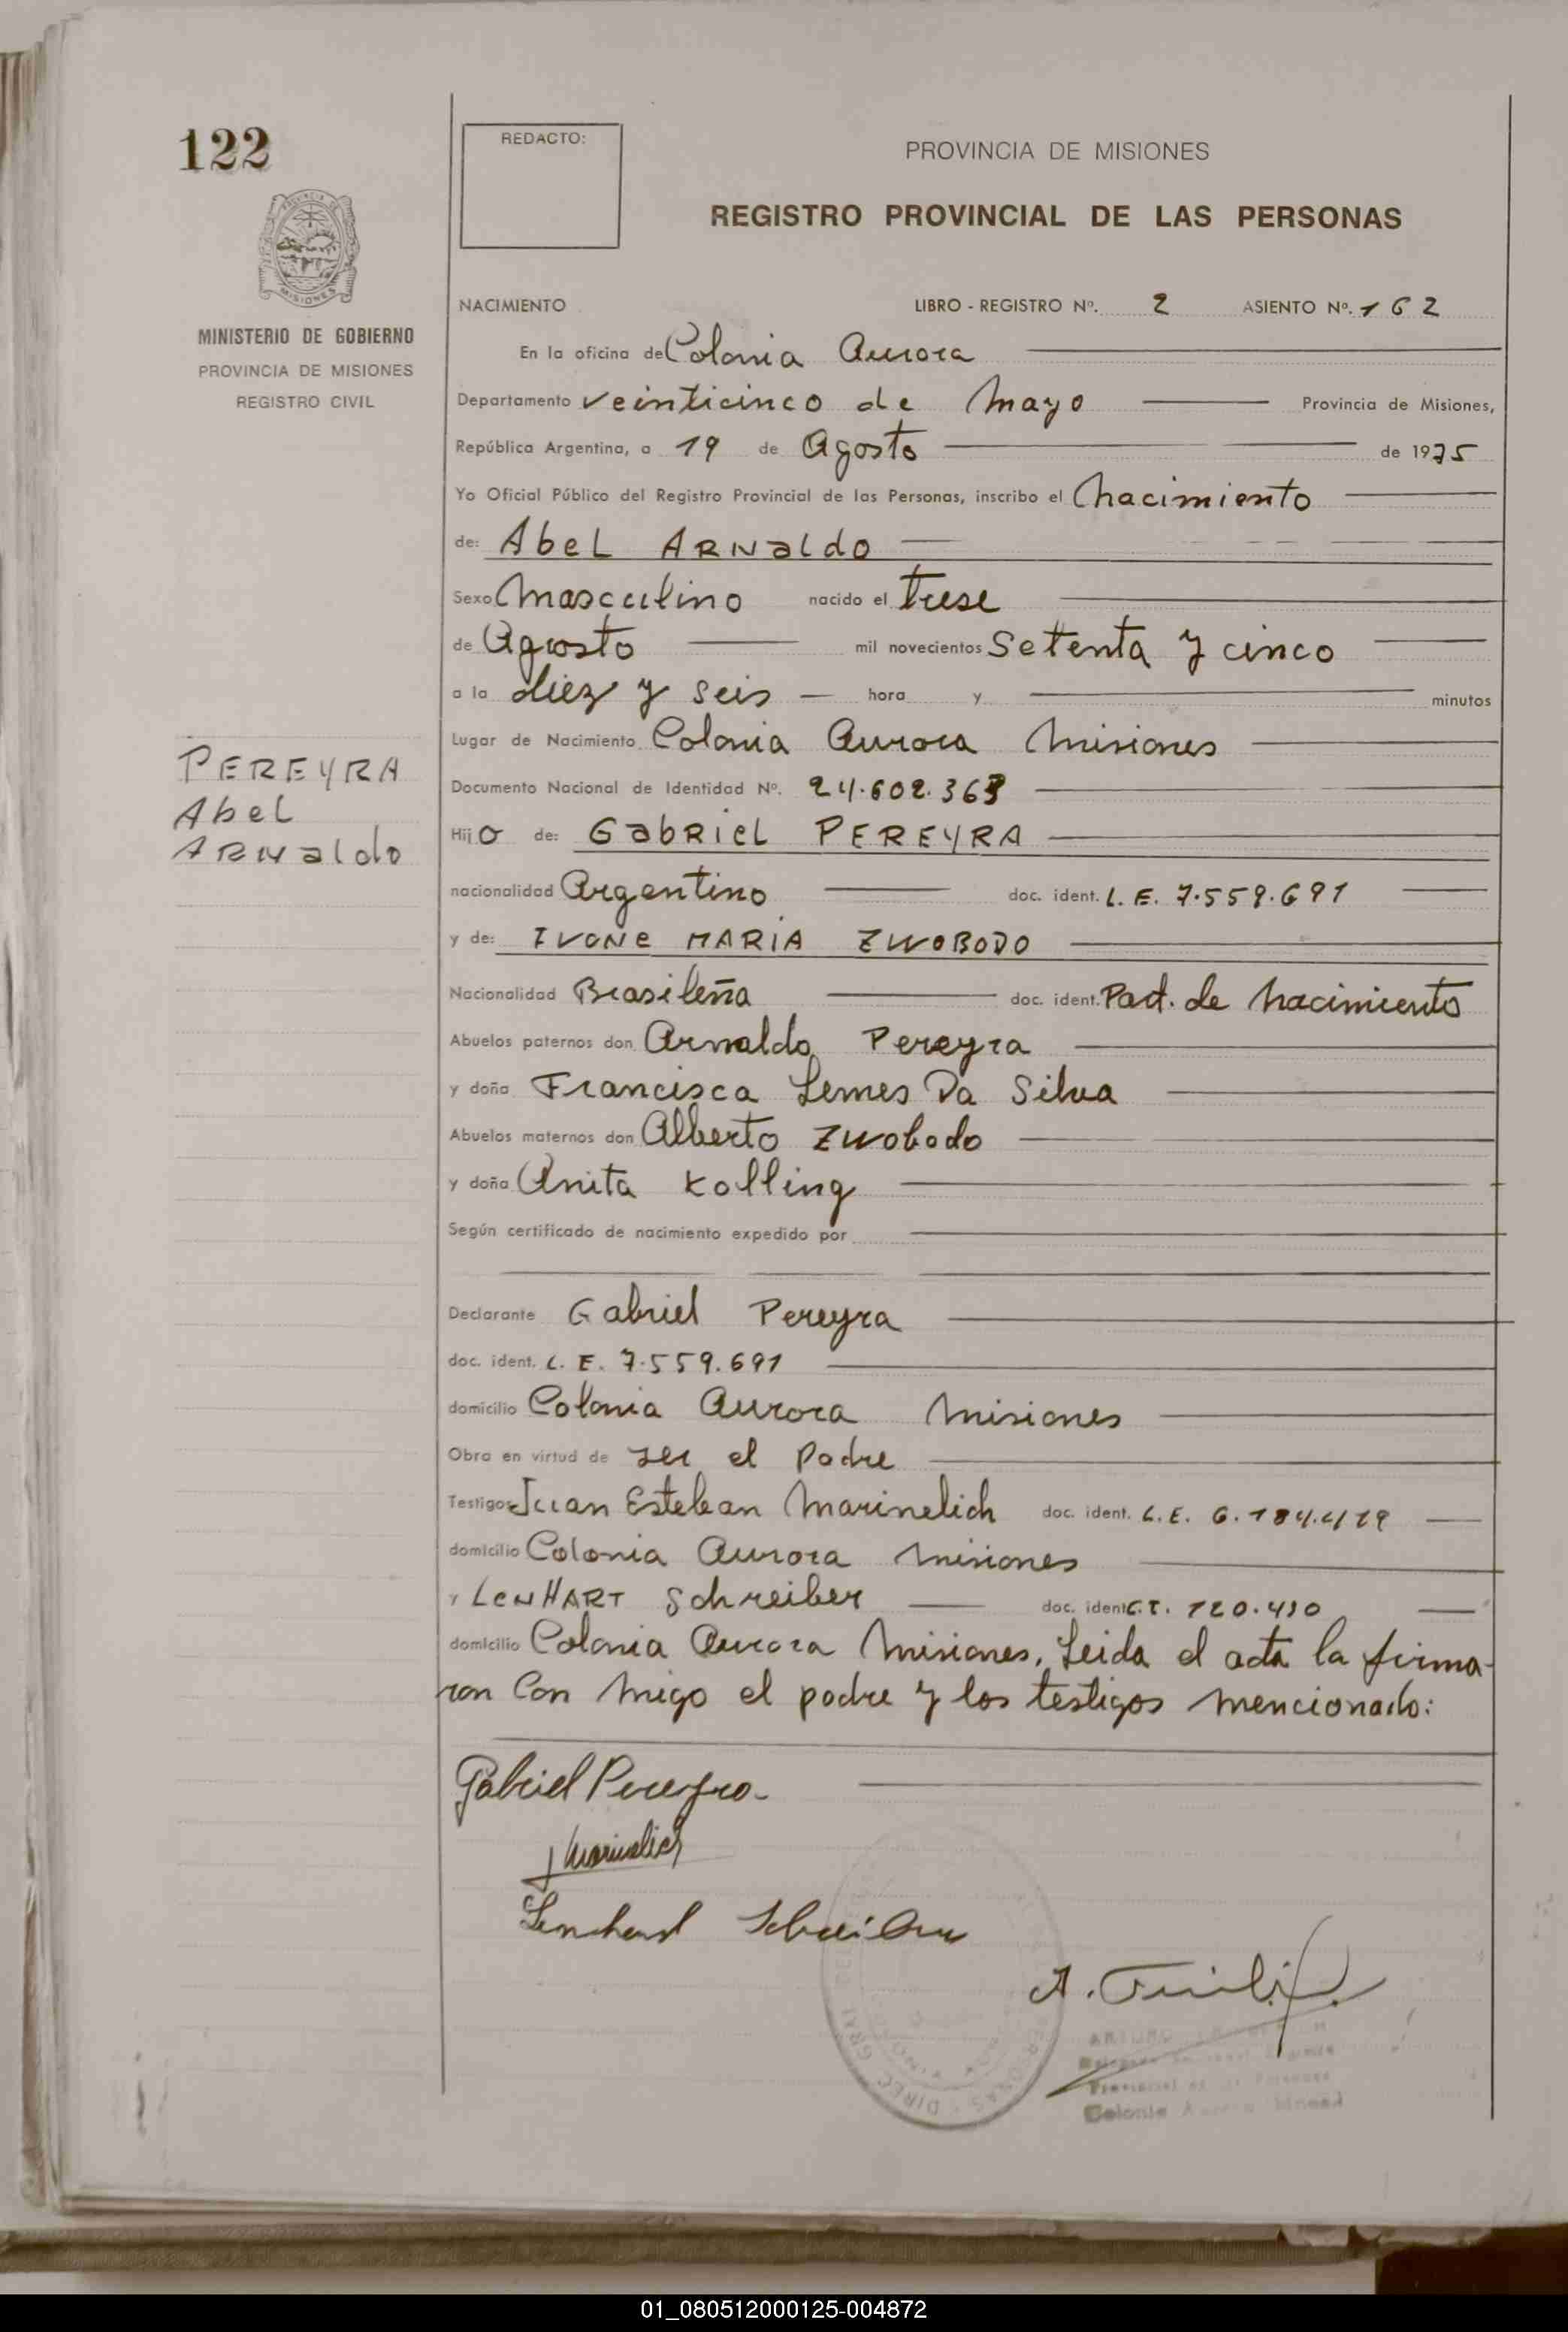 122
REDACTO:
PROVINCIA DE MISIONES
REGISTRO PROVINCIAL DE LAS PERSONAS
MISIONES
MINISTERIO DE GOBIERNO
PROVINCIA DE MISIONES
REGISTRO CIVIL
NACIMIENTO LIBRO - REGISTRO Nº. 2 ASIENTO Nº. 162
En la oficina de Colonia Aurora
Departamento veinticinco de Mayo Provincia de Misiones,
República Argentina, a 19 de Agosto de 1975
Yo Oficial Público del Registro Provincial de las Personas, inscribo el Nacimiento
de: Abel ARNaldo
Sexo Masculino nacido el trese
de Agosto mil novecientos Setenta y cinco
a la diez y seis hora y minutos
Lugar de Nacimiento Colonia Aurora Misiones
PEREYRA
Abel
ARNaldo
Documento Nacional de Identidad Nº. 24.602.363
Hijo de: GabRiel PEREYRA
nacionalidad Argentino doc. ident. L. E. 7.559.691
y de: IVONE MARIA ZWOBODO
Nacionalidad Brasileña doc. ident. Part. de Nacimiento
Abuelos paternos don Arnaldo Pereyra
y doña Francisca Lemes Da Silva
Abuelos maternos don Alberto Zwobodo
y doña Anita Kolling
Según certificado de nacimiento expedido por
Declarante Gabriel Pereyra
doc. ident. L. E. 7.559.691
domicilio Colonia Aurora Misiones
Obra en virtud de ser el Padre
Testigos Juan Esteban Marinelich doc. ident. L.E. 6.184.419
domicilio Colonia Aurora Misiones
y LENHART Schreiber doc. ident. C.I. 120.410
domicilio Colonia Aurora Misiones, Leida el acta la firma-
ron Con Migo el padre y los testigos mencionado:
Gabriel Pereyra
J Marinelich
Lenhard Schreiber
01_080512000125-004872